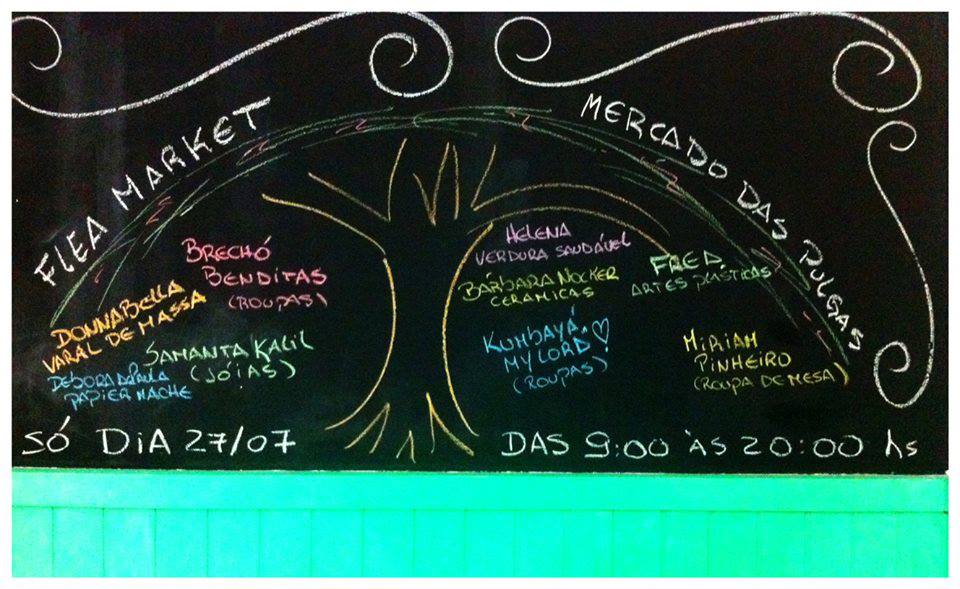 FLEA MARKET
MERCADO DAS PULGAS
BRECHÓ
BENDITAS
(ROUPAS)
DONNABELLA
VARAL DE MASSA
SAMANTA KALIL
(JÓIAS)
DEBORA DAPAULA
PAPIER MACHE
HELENA
VERDURA SAUDÁVEL
BÁRBARA NOCKER
CERAMICAS
FRED
ARTES PLÁSTICAS
KUMBAYÁ,
MY LORD!
(ROUPAS)
MIRIAM
PINHEIRO
(ROUPA DE MESA)
SÓ DIA 27/07
DAS 9:00 ÀS 20:00 hs